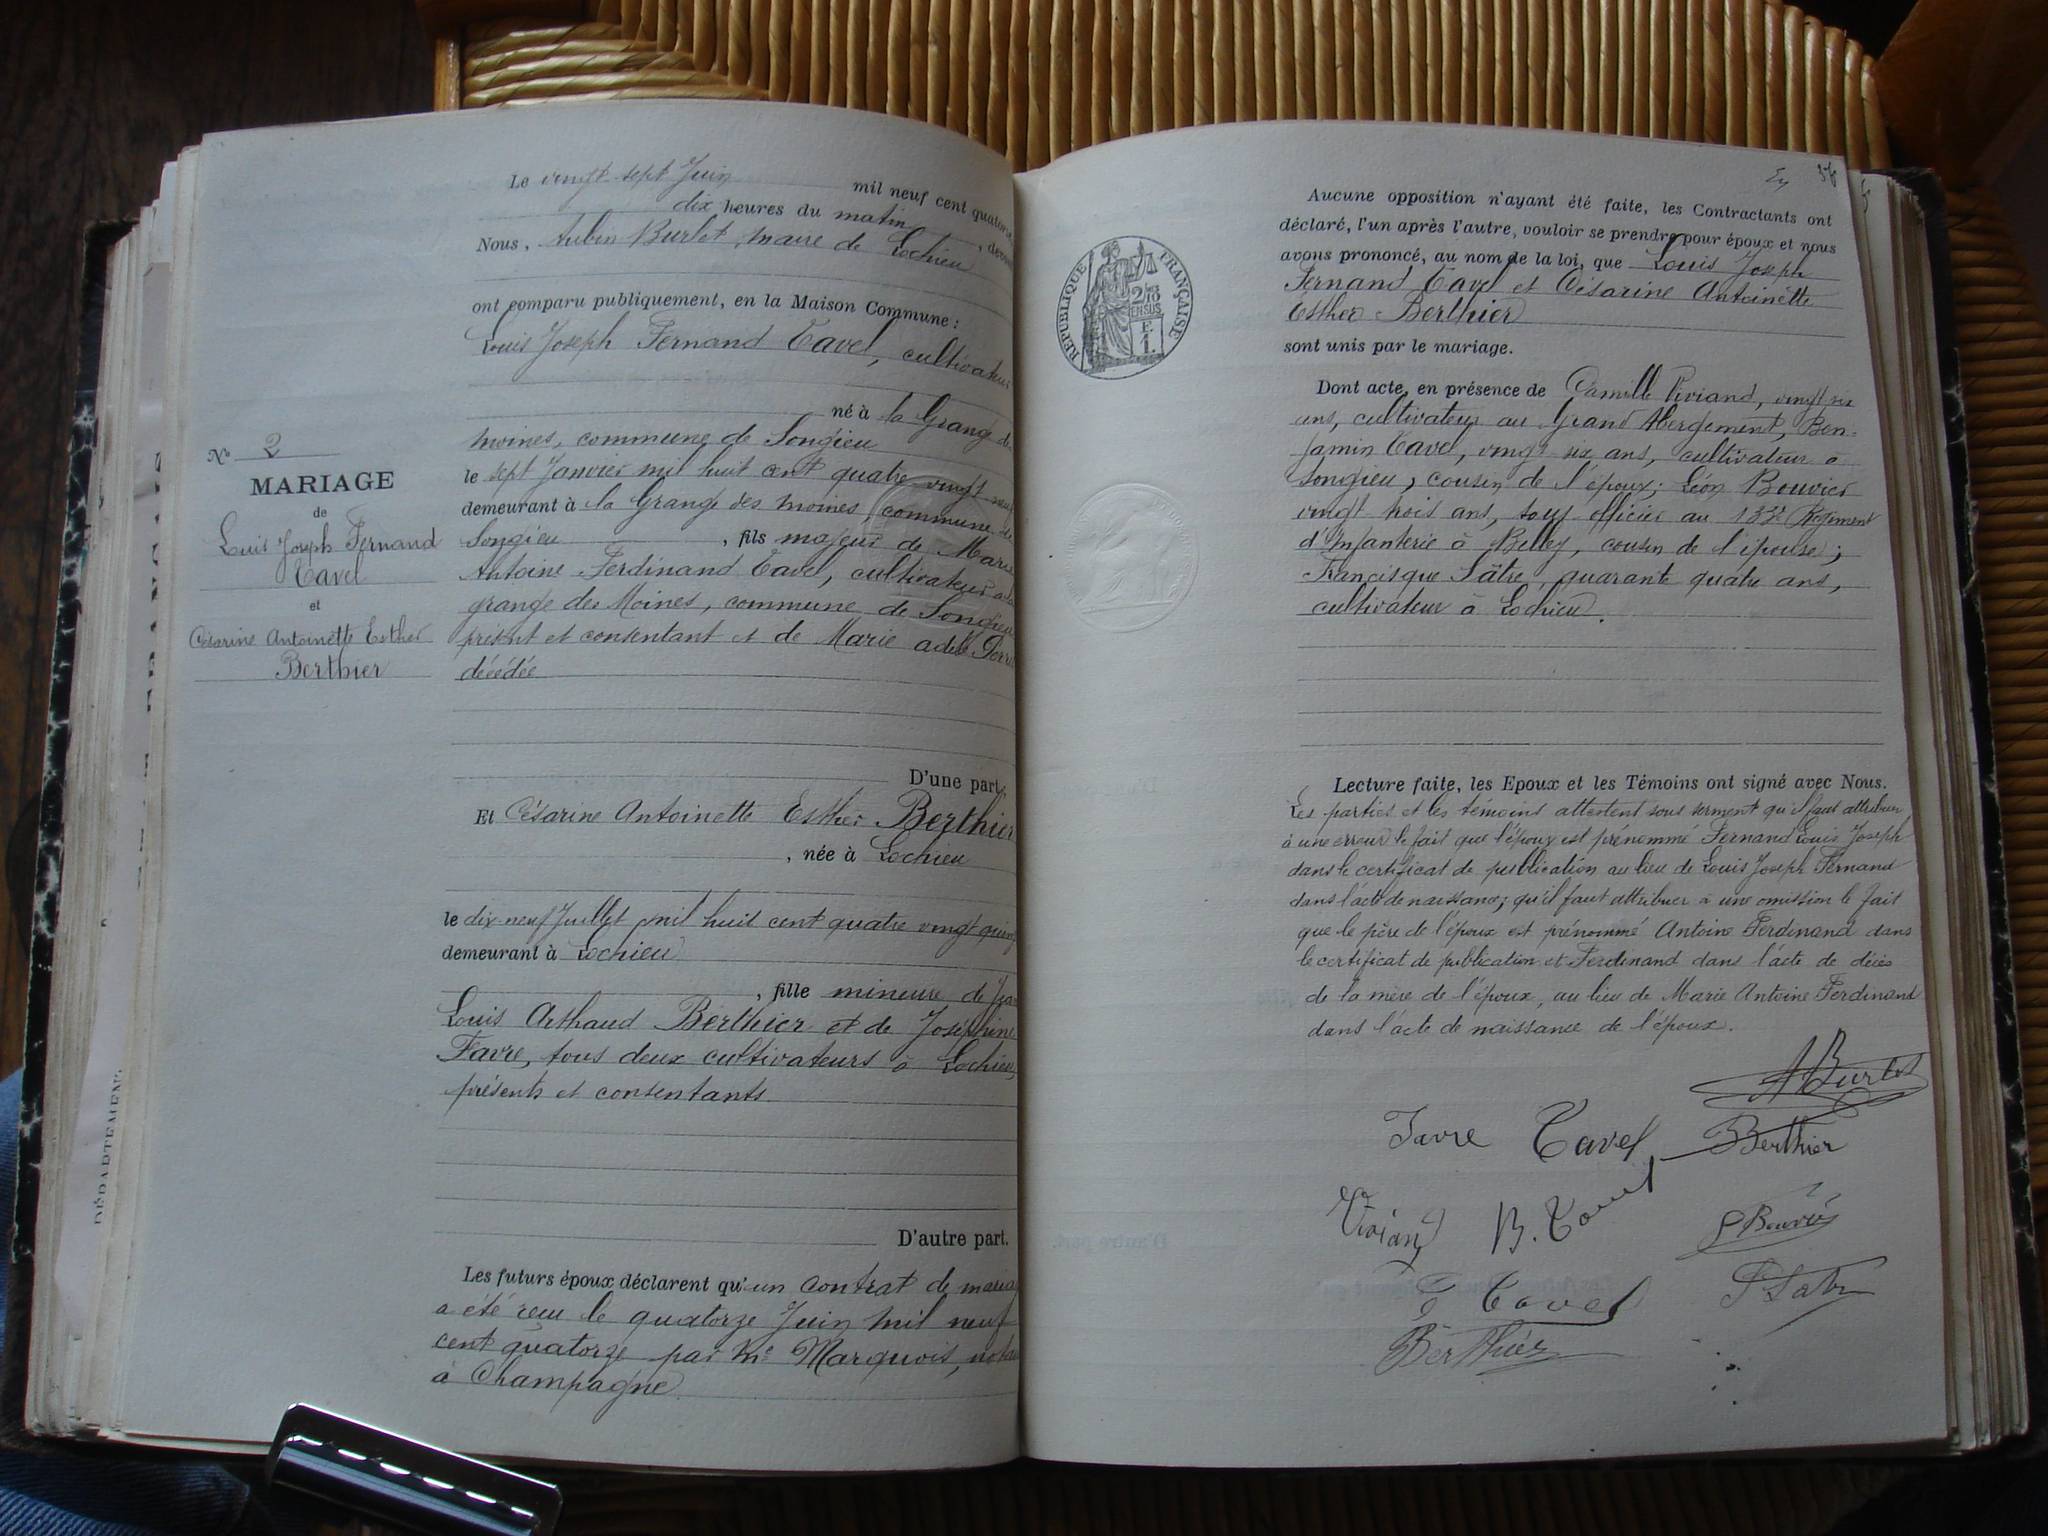 Le vingt sept Juin mil neuf cent quatorze,
dix heures du matin, devant
Nous, Aubin Burlet, maire de Lochieu
ont comparu publiquement, en la Maison Commune :
Louis Joseph Fernand Tavel, cultivateur
né à la Grange des
moines, commune de Songieu
le sept Janvier mil huit cent quatre vingt neuf
demeurant à la Grange des moines, commune de
Songieu, fils majeur de Marie
Antoine Ferdinand Tavel, cultivateur à la
grange des Moines, commune de Songieu
présent et consentant et de Marie adèle
décédée
D'une part,
Et Césarine Antoinette Esther Berthier
, née à Lochieu
le dix-neuf Juillet mil huit cent quatre vingt
demeurant à Lochieu
, fille mineure de
Louis Arthaud Berthier et de Joséphine
Favre, tous deux cultivateurs à Lochieu,
présents et consentants
D'autre part.
Les futurs époux déclarent qu'un contrat de mariage
a été reçu le quatorze Juin mil neuf
cent quatorze par Me Marquois, notaire
à Champagne
No 2
MARIAGE
de
Louis Joseph Fernand
Tavel
et
Césarine Antoinette Esther
Berthier
DÉPARTEMENT
RÉPUBLIQUE FRANÇAISE
2/10
EN SUS
F.
1.
Aucune opposition n'ayant été faite, les Contractants ont
déclaré, l'un après l'autre, vouloir se prendre pour époux et nous
avons prononcé, au nom de la loi, que Louis Joseph
Fernand Tavel et Césarine Antoinette
Esther Berthier
sont unis par le mariage.
Dont acte, en présence de Camille Viviand, vingt six
ans, cultivateur au Grand Abergement, Ben-
jamin Tavel, vingt six ans, cultivateur à
Songieu, cousin de l'époux; Léon Bouvier
vingt trois ans, sous officier au 133e Régiment
d'Infanterie à Belley, cousin de l'épouse;
Francisque Sâtre, quarante quatre ans,
cultivateur à Lochieu.
Lecture faite, les Epoux et les Témoins ont signé avec Nous.
Les parties et les témoins attestent sous serment qu'il faut attribuer
à une erreur le fait que l'époux est prénommé Fernand Louis Joseph
dans le certificat de publication au lieu de Louis Joseph Fernand
dans l'acte de naissance; qu'il faut attribuer à une omission le fait
que le père de l'époux est prénommé Antoine Ferdinand dans
le certificat de publication et Ferdinand dans l'acte de décès
de la mère de l'époux, au lieu de Marie Antoine Ferdinand
dans l'acte de naissance de l'époux.
A Burlet
Favre Tavel Berthier
Viviand B. Tavel Bouvier
Tavel
Berthier